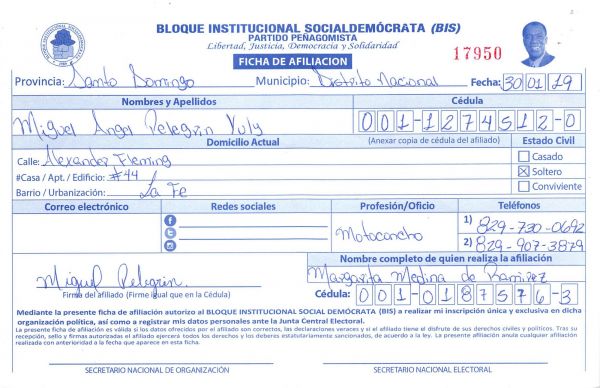 BLOQUE INSTITUCIONAL SOCIALDEMÓCRATA (BIS)
PARTIDO PEÑAGOMISTA
Libertad, Justicia, Democracia y Solidaridad
17950
FICHA DE AFILIACION
Provincia: Santo Domingo Municipio: Distrito Nacional Fecha: 30 01 19
Nombres y Apellidos Cédula
Miguel Angel Pelegrin Yuly 001-1274512-0
Domicilio Actual (Anexar copia de cédula del afiliado) Estado Civil
Calle: Alexander Fleming Casado
#Casa / Apt. / Edificio: #44 Soltero
Barrio / Urbanización: La Fe Conviviente
Correo electrónico Redes sociales Profesión/Oficio Teléfonos
Motoconcho 1) 829-730-0692
2) 829-907-3879
Nombre completo de quien realiza la afiliación
Miguel Pelegrin. Margarita Medina de Ramirez
Firma del afiliado (Firme igual que en la Cédula) Cédula: 001-0187576-3
Mediante la presente ficha de afiliación autorizo al BLOQUE INSTITUCIONAL SOCIAL DEMÓCRATA (BIS) a realizar mi inscripción única y exclusiva en dicha
organización política, así como a registrar mis datos personales ante la Junta Central Electoral.
La presente ficha de afiliación es válida si los datos ofrecidos por el afiliado son correctos, las declaraciones veraces y si el afiliado tiene el disfrute de sus derechos civiles y políticos. Tras su
recepción, sello y firmas autorizadas el afiliado ejercerá todos los derechos y los deberes estatutariamente sancionados, de acuerdo a la ley. La presente afiliación anula cualquier afiliación
realizada con anterioridad a la fecha que aparece en esta ficha.
SECRETARIO NACIONAL DE ORGANIZACIÓN SECRETARIO NACIONAL ELECTORAL